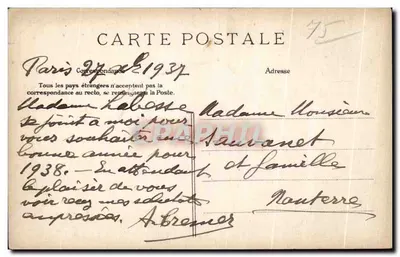 75
CARTE POSTALE
Correspondance
Adresse
Paris 27 déc 1937
Tous les pays étrangers n'acceptent pas la
correspondance au recto, se renseigner à la Poste.
Madame Labesse
se joint à moi pour
vous souhaiter une
bonne année pour
1938. - En attendant
le plaisir de vous
voir recevez mes salutations
empressées.
Madame Monsieur
Sauvanet
et famille
Nanterre